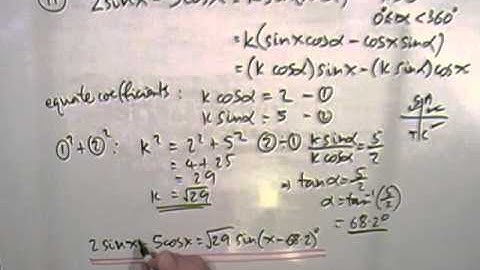 2sinx - 5cosx =
0°≤α<360°
= k(sinxcosα - cosxsinα)
= (k cosα)sinx - (k sinα)cosx
equate coefficients : k cosα = 2 - ①
k sinα = 5 - ②
①²+②² : k² = 2² + 5²
= 4 + 25
= 29
k = √29
②÷① ksinα/kcosα = 5/2
⇒ tanα = 5/2
α = tan⁻¹(5/2)
= 68.2°
2sinx - 5cosx = √29 sin(x-68.2)°